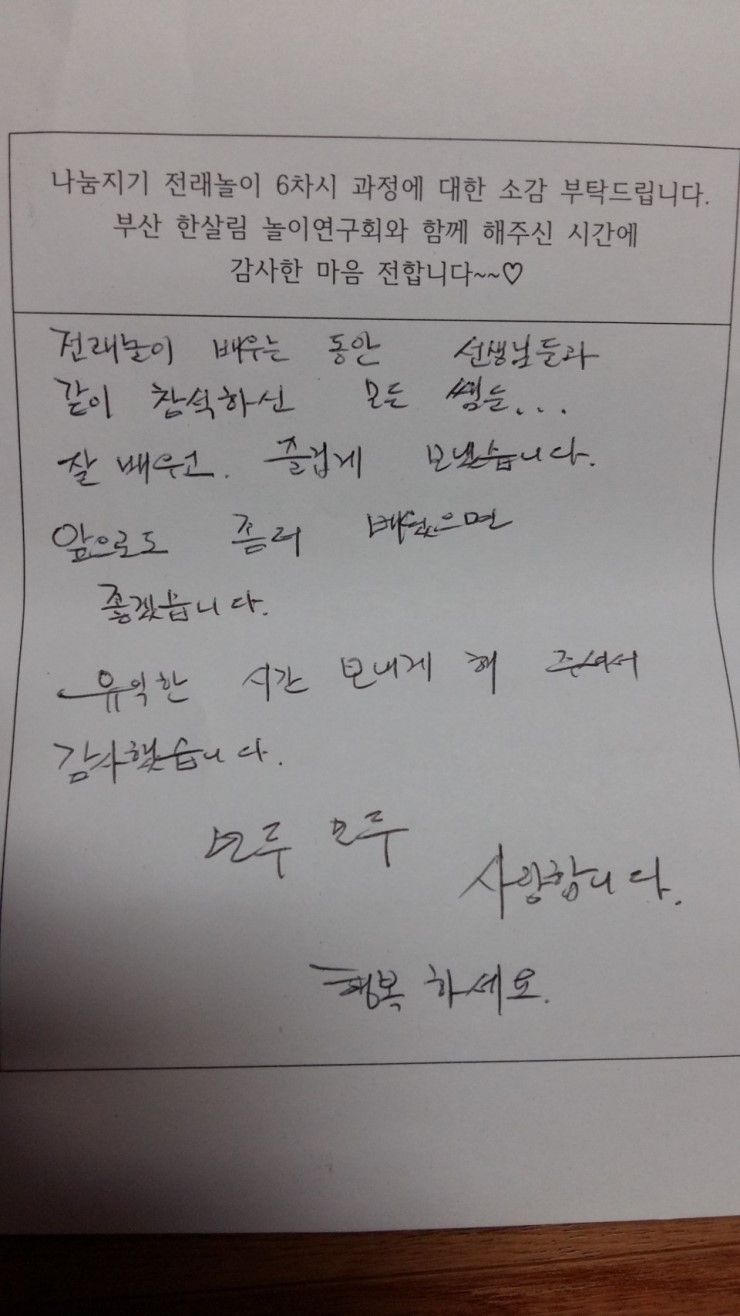 나눔지기 전래놀이 6차시 과정에 대한 소감 부탁드립니다.
부산 한살림 놀이연구회와 함께 해주신 시간에
감사한 마음 전합니다~~♡
전래놀이 배우는 동안 선생님들과
같이 참석하신 모든 쌤들...
잘 배우고. 즐겁게 보냈습니다.
앞으로도 좀더 배웠으면
좋겠습니다.
유익한 시간 보내게 해 주셔서
감사했습니다.
모두 모두
사랑합니다.
행복 하세요.